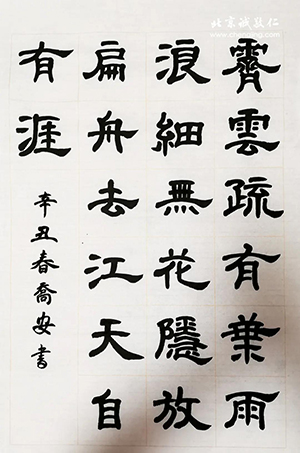 霽雲疏有葉雨
浪細無花隱放
扁舟去江天自
有涯
辛丑春喬安書